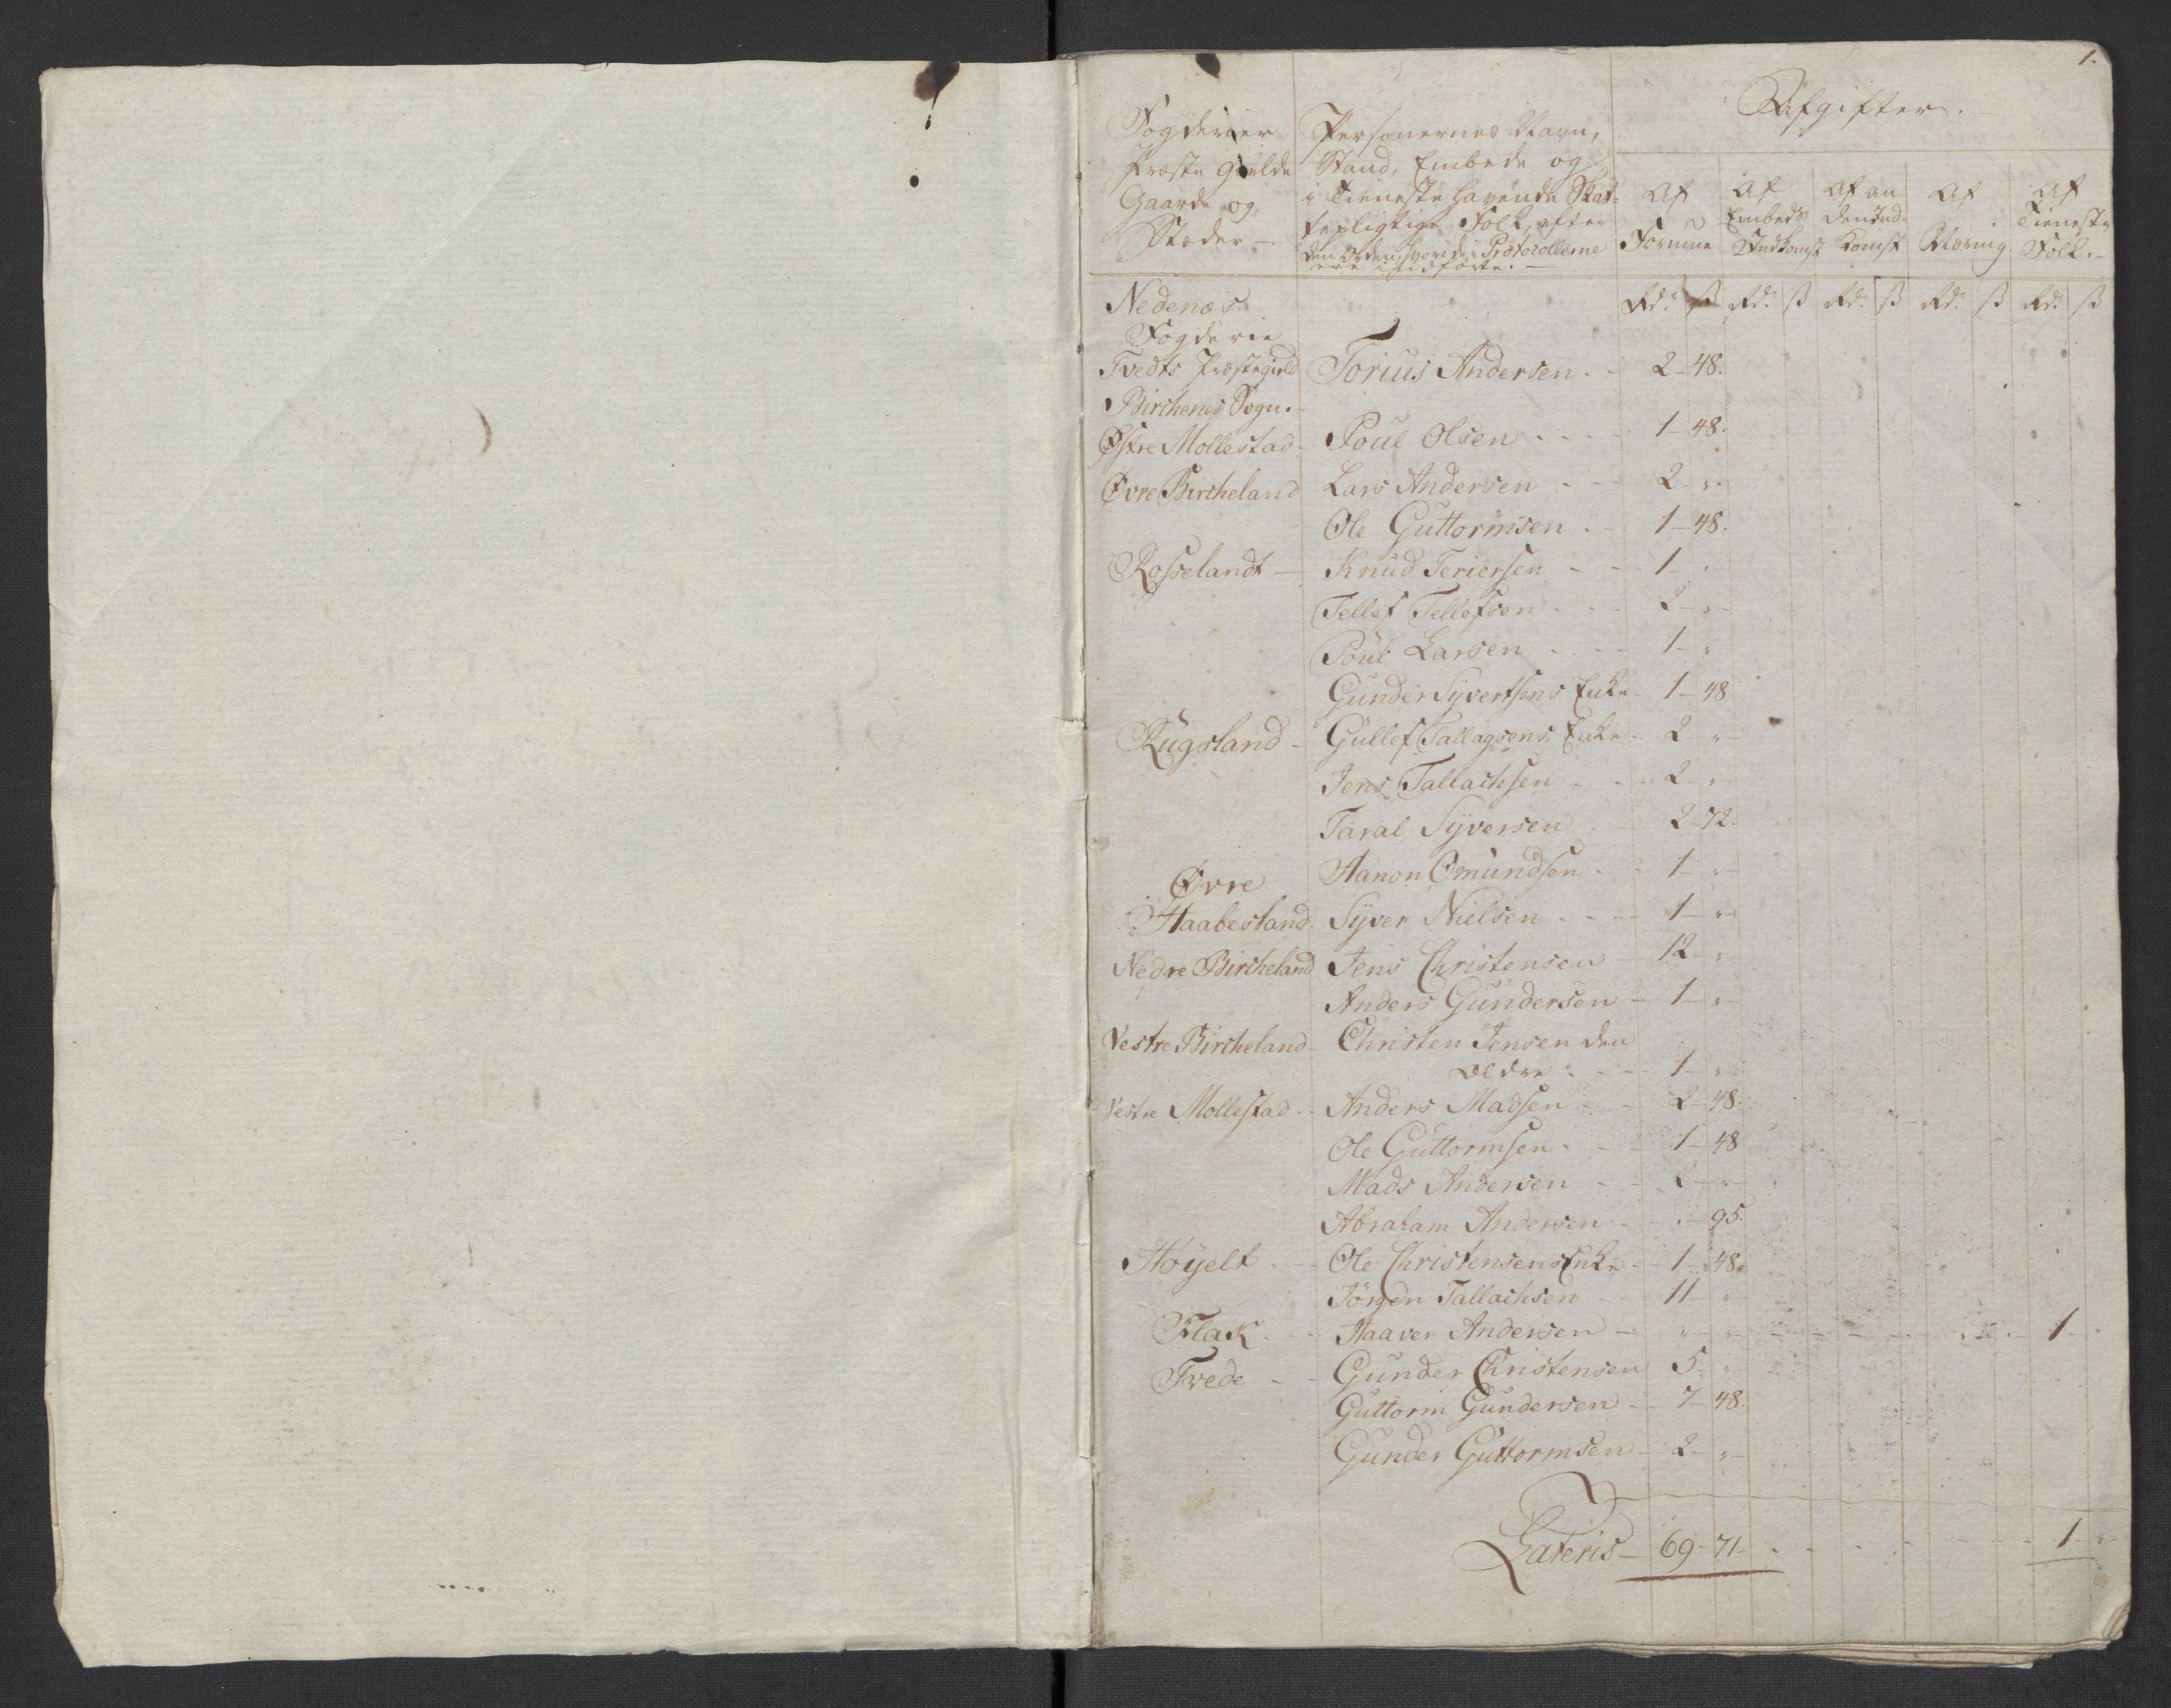 1.
Fogderier
Præste Gielde
Gaarde og
Stæder —
Personernes Navn,
Stand, Embede og
i Tieneste havende Skat-
tepligtige Folk, efter
den Orden, hvori de i Protocollerne
ere indførte. —
Afgifter. —
Af
Formue
Af
Embeds
Indkomst
Af an
den Ind-
komst
Af
Næring
Af
Tieneste
Folk. -
Nedenæs Rdr ß Rdr ß Rdr ß Rdr ß Rdr ß
Fogderie
Tvedts Præstegield Torius Andersen - 2 - 48.
Birchenes Sogn. -
Østre Mollestad - Poul Olsen - - - - 1 - 48.
Øvre Bircheland Lars Andersen - - - 2 - "
Ole Guttormsen - - 1 - 48.
Rosselandt — Knud Teriersen - - - 1 - "
Tellef Tellefsen - - - 2 - "
Poul Larsen - - - - 1 - "
Gunder Syvertsens Enke - 1 - 48
Rugsland - Gullef Tallagsens Enke - 2 - "
Jens Tallachsen - - - 2 - "
Taral Syversen 2 - 72.
Øvre Aanon Omundsen - - 1 - "
Haabesland - Syver Nielsen - - - - 1 - "
Nedre Bircheland Jens Christensen - 12 - "
Anders Gundersen - 1 - "
Vestre Bircheland - Christen Jensen den
Ældre - - - 1 - "
Vestre Mollestad - - Anders Madsen - - 2 - 48.
Ole Guttormsen - - - 1 - 48
Mads Andersen - - 2 - "
Abraham Andersen - - " - 95.
Høyelt - - Ole Christensens Enke - 1 - 48.
Jörgen Tallachsen 11 - "
Flak - - Haaver Andersen - " - " - - - - - - 1 - "
Tvede - - Gunder Christensen 5 - "
Guttorm Gundersen - 7 - 48.
Gunder Guttormsen - 2 - "
Lateris - 69 - 71 - - - - - - - 1 - "